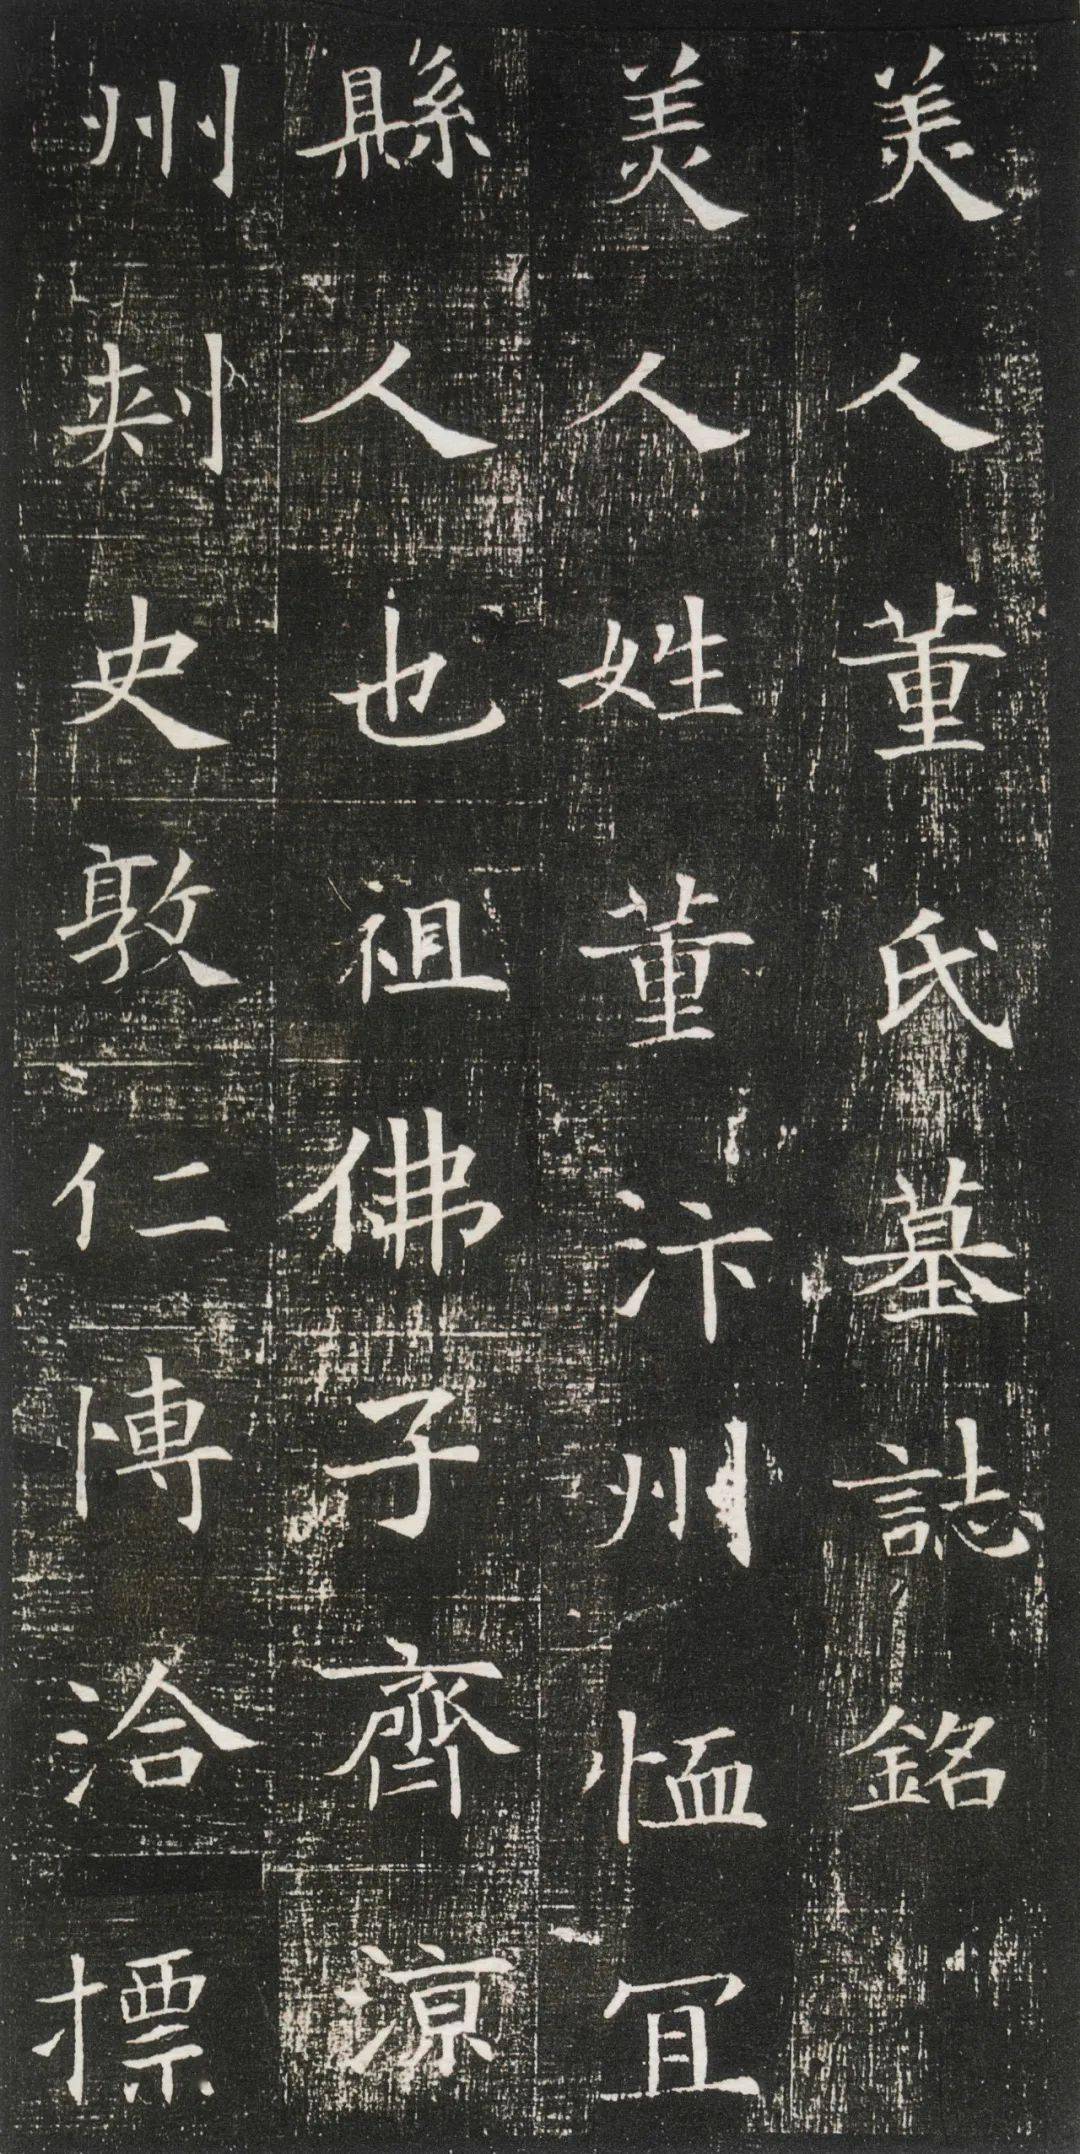 美人董氏墓誌銘
美人姓董汴州恤冝
縣人也祖佛子齊涼
州刾史敦仁愽洽摽